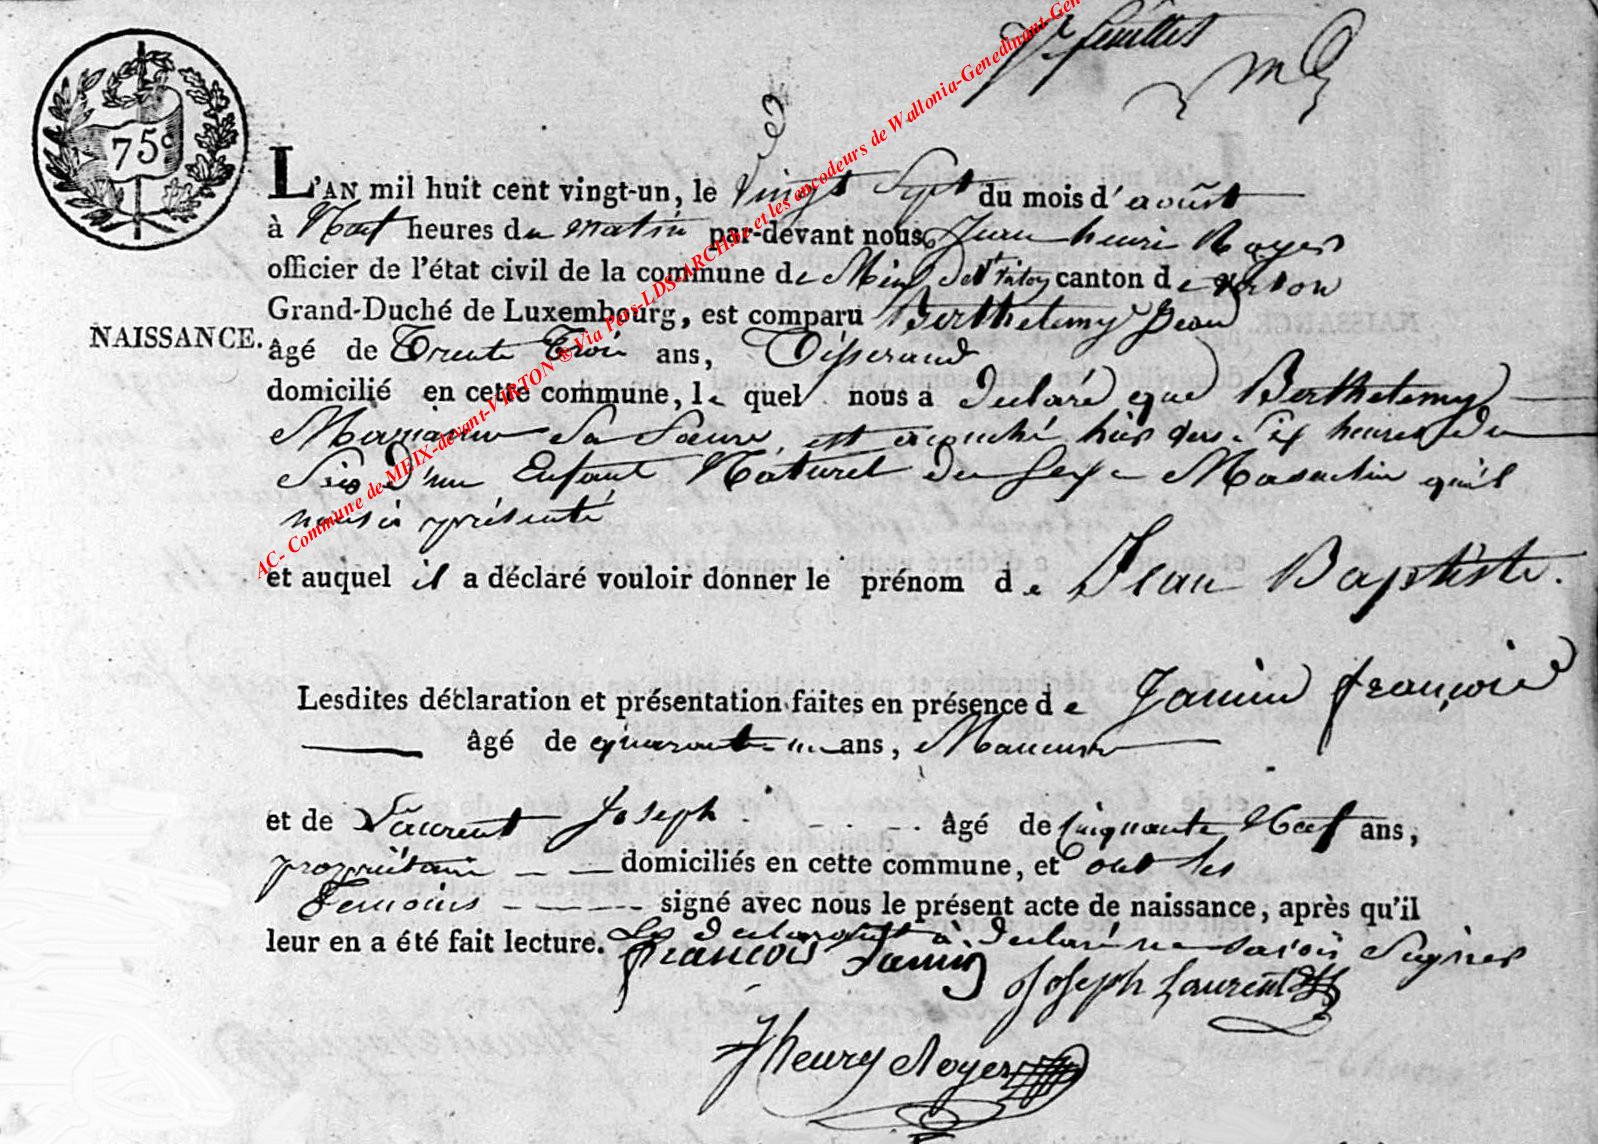 7e feuillet
75c
L'AN mil huit cent vingt-un, le Vingt Sept du mois d'aoûst
à Neuf heures du matin par-devant nous Jean henri Royer
officier de l'état civil de la commune de Meix devt virton canton de virton
Grand-Duché de Luxembourg, est comparu Berthelemy Jean
NAISSANCE.
âgé de Trente Trois ans, Tisserand
domicilié en cette commune, le quel nous a declaré que Berthelemy
Marianne Sa Sœure, est acouché hier vers Six heures du
Soir d'un Enfant Naturel du Sexe Masculin qu'il
nous à présenté
et auquel il a déclaré vouloir donner le prénom de Jean Baptiste.
Lesdites déclaration et présentation faites en présence de Janin françois
âgé de quarante un ans, Maneuvre
et de Laurent Joseph âgé de Cinquante Neuf ans,
propriétaire domiciliés en cette commune, et ont les
Temoins signé avec nous le présent acte de naissance, après qu'il
leur en a été fait lecture. Le declarant à declaré ne savoir Signer
françois Janin
Joseph Laurent
J henry Royer
AC- Commune de MEIX-devant-VIRTON ® Via Pers-LDS-ARCH.be et les encodeurs de Wallonia-Genedinant-Gen